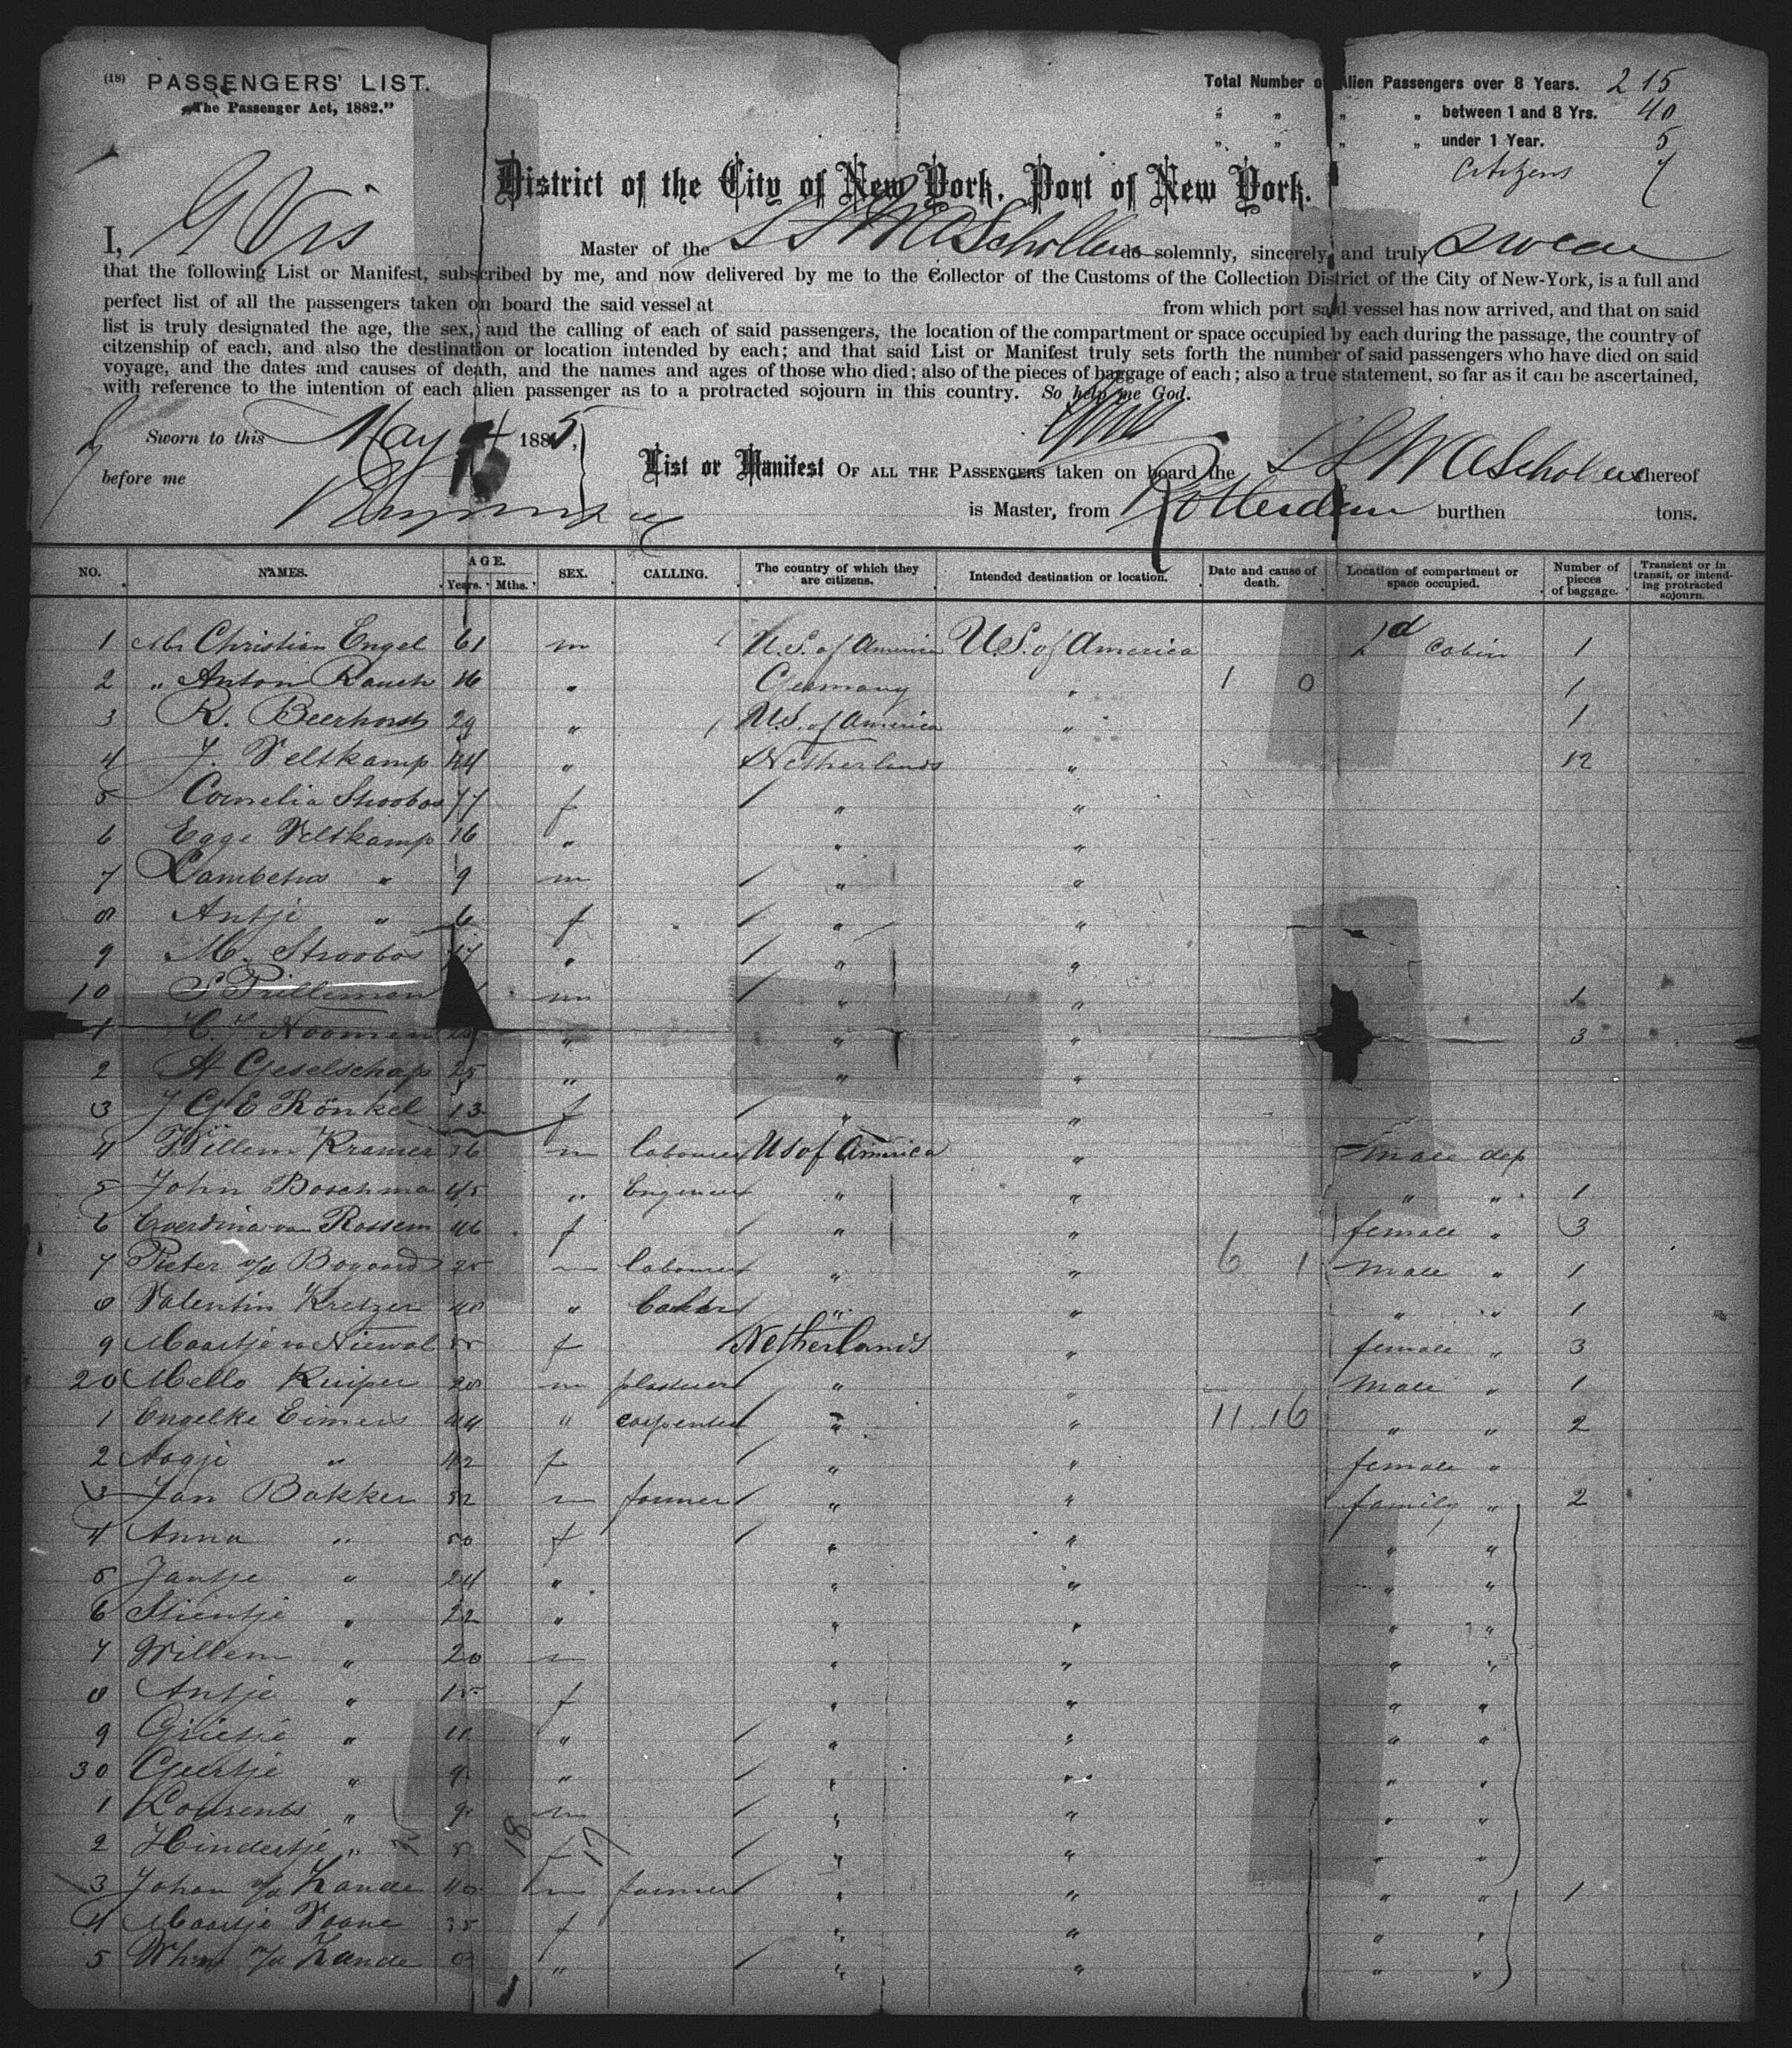 (18) PASSENGERS' LIST.
"The Passenger Act, 1882."
Total Number of Alien Passengers over 8 Years. 215
" " " " between 1 and 8 Yrs. 40
" " " " under 1 Year. 5
Citizens 7
District of the City of New York, Port of New York.
I, G Vis Master of the SS W A Scholten do solemnly, sincerely and truly swear
that the following List or Manifest, subscribed by me, and now delivered by me to the Collector of the Customs of the Collection District of the City of New-York, is a full and
perfect list of all the passengers taken on board the said vessel at from which port said vessel has now arrived, and that on said
list is truly designated the age, the sex, and the calling of each of said passengers, the location of the compartment or space occupied by each during the passage, the country of
citzenship of each, and also the destination or location intended by each; and that said List or Manifest truly sets forth the number of said passengers who have died on said
voyage, and the dates and causes of death, and the names and ages of those who died; also of the pieces of baggage of each; also a true statement, so far as it can be ascertained,
with reference to the intention of each alien passenger as to a protracted sojourn in this country. So help me God.
Sworn to this May 1885,
before me
List or Manifest OF ALL THE PASSENGERS taken on board the SS W A Scholten whereof
is Master, from Rotterdam burthen tons.
NO. NAMES. AGE. Years. Mths. SEX. CALLING. The country of which they are citizens. Intended destination or location. Date and cause of death. Location of compartment or space occupied. Number of pieces of baggage. Transient or in transit, or intending protracted sojourn.
1 Mr Christian Engel 61 m U.S. of America U.S. of America 2d Cabin 1
2 " Anton Rauch 16 " Germany " 1 0 1
3 R. Beerhorst 29 " U.S. of America " 1
4 J. Veltkamp 44 " Netherlands " 12
5 Cornelia Stroobos 77 f " "
6 Egge Veltkamp 16 " " "
7 Lambertus " 9 m " "
8 Antje " 6 f " "
9 M. Stroobos " " "
10 S Prilleman m " " 1
1 C. J. Noomen " " " 3
2 A Geselschap 25 " " "
3 J G E Rönkel 13 f " "
4 Willem Kramer 36 m labourer US of America " male dep
5 John Boschma 45 " Engineer " " " " 1
6 Everdina van Rossem 46 f " " female " 3
7 Pieter v/d Bogaard 25 m labourer " " 6 1 male " 1
8 Valentin Kretzer 48 " baker " " " " 1
9 Maartje v Niewal 55 f Netherlands " female " 3
20 Mello Kuiper 28 m plasterer " " male " 1
1 Engelke Eimers 44 " carpenter " " 11.16 " " 2
2 Aagje " 42 f " " female "
3 Jan Bakker 52 m farmer " " family " 2
4 Anna " 50 f " " " "
5 Jantje " 24 " " " " "
6 Stientje " 22 " " " " "
7 Willem " 20 m " " " "
8 Antje " 15 f " " " "
9 Grietje " 11 " " " " "
30 Geertje " 9 " " " " "
1 Lourents " 9 m " " " "
2 Hindertje " 5 f " " " "
18 17
3 Johan v/d Zande 40 m farmer " " " " 1
4 Maartje Vaane 35 f " " " "
5 Whn v/d Zande 8 " " " " "